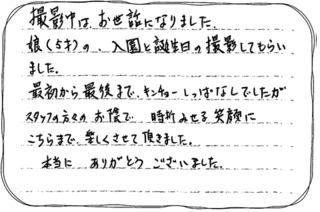 撮影中は、お世話になりました。
娘（5才）の、入園と誕生日の撮影してもらい
ました。
最初から最後まで、キンチョーしっぱなしでしたが
スタッフの方々のお陰で、時折みせる笑顔に
こちらまで、楽しくさせて頂きました。
本当に ありがとう ございました。